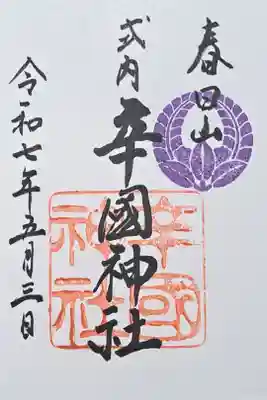 春日山
式内 辛國神社
令和七年五月三日
辛國
神社